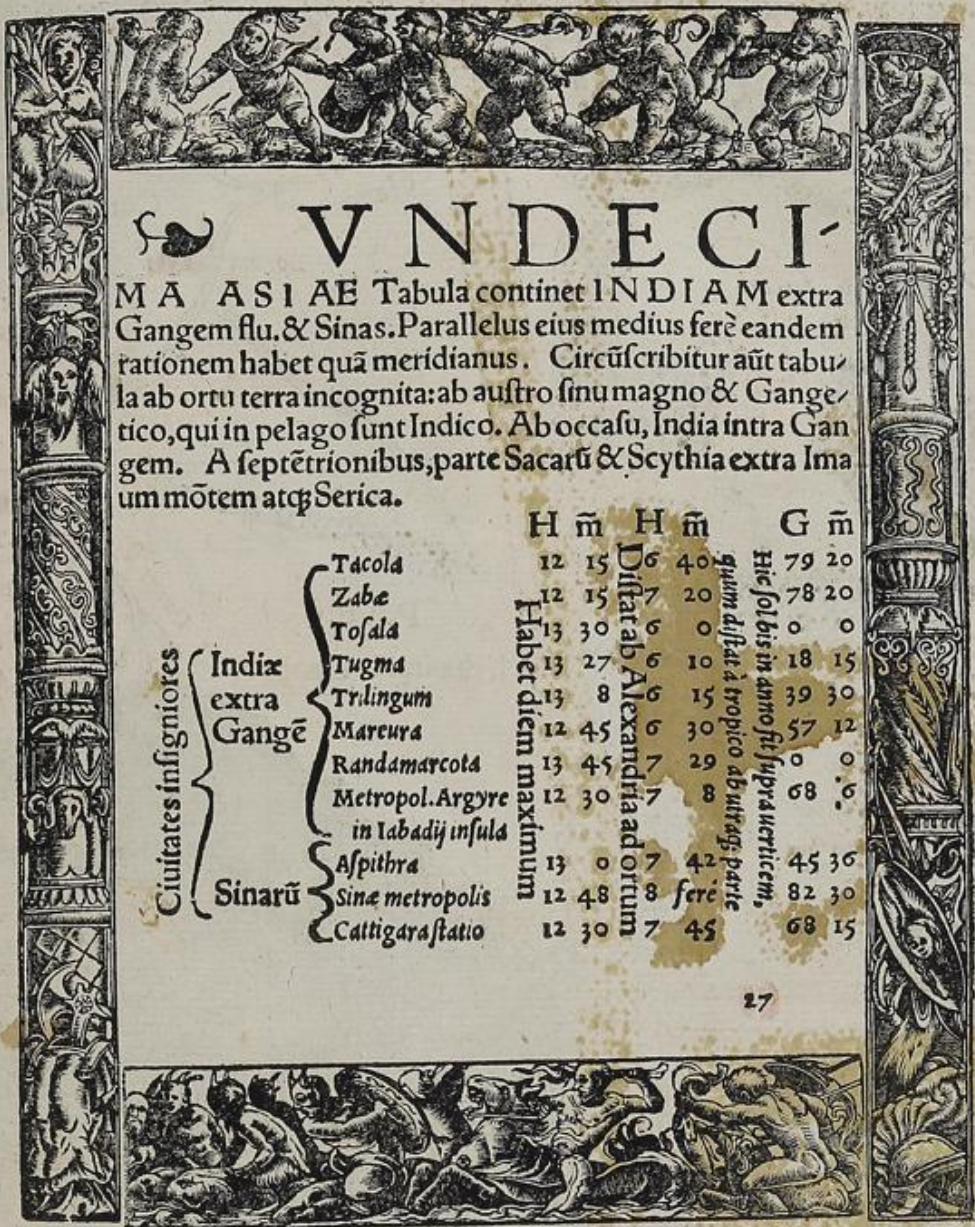 VNDECI-
MA ASIAE Tabula continet INDIAM extra
Gangem flu. & Sinas. Parallelus eius medius ferè eandem
rationem habet quā meridianus. Circūſcribitur aūt tabu-
la ab ortu terra incognita: ab auſtro ſinu magno & Gange-
tico, qui in pelago ſunt Indico. Ab occaſu, India intra Gan
gem. A ſeptētrionibus, parte Sacarū & Scythia extra Ima
um mōtem atqꝫ Serica.
H m̄ H m̄ G m̄
Ciuitates inſigniores
Indiæ
extra
Gangē
Habet diem maximum
Diſtat ab Alexandria ad ortum
Hic ſol bis in anno fit ſupra uerticem,
quum diſtat à tropico ab utraqꝫ parte
Tacola 12 15 6 40 79 20
Zabæ 12 15 7 20 78 20
Toſala 13 30 6 0 0 0
Tugma 13 27 6 10 18 15
Trilingum 13 8 6 15 39 30
Mareura 12 45 6 30 57 12
Randamarcota 13 45 7 29 0 0
Metropol. Argyre 12 30 7 8 68 6
in Iabadij inſula
Sinarū
Aſpithra 13 0 7 42 45 36
Sinæ metropolis 12 48 8 ferè 82 30
Cattigara ſtatio 12 30 7 45 68 15
27